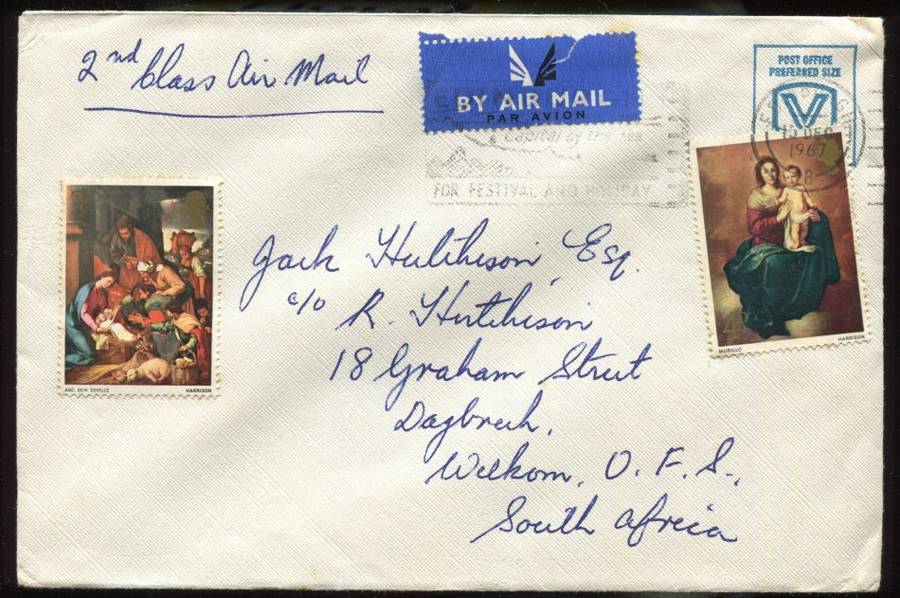 2nd Class Air Mail
BY AIR MAIL
PAR AVION
POST OFFICE
PREFERRED SIZE
10 DEC
1967
Capital by the sea
FOR FESTIVAL AND HOLIDAY
Jack Hutchison, Esq.
c/o R. Hutchison
18 Graham Street
Dagbreek,
Welkom, O.F.S.,
South Africa
SCH. SEVILLE HARRISON
4D
MURILLO HARRISON